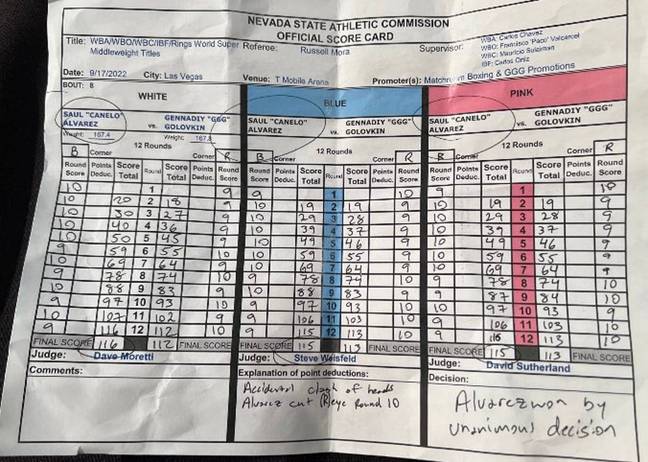 NEVADA STATE ATHLETIC COMMISSION
OFFICIAL SCORE CARD
Title: WBA/WBO/WBC/IBF/Rings World Super Middleweight Titles
Referee: Russell Mora
Supervisor: WBA: Carlos Chavez
WBO: Francisco "Paco" Valcarcel
WBC: Mauricio Sulaiman
IBF: Carlos Ortiz
Date: 9/17/2022 City: Las Vegas Venue: T Mobile Arena Promotor(s): Boxing & GGG Promotions
BOUT: 8
WHITE BLUE PINK
SAUL "CANELO" ALVAREZ vs. GENNADIY "GGG" GOLOVKIN
Weight: 167.4 Weight:
SAUL "CANELO" ALVAREZ vs. GENNADIY "GGG" GOLOVKIN
SAUL "CANELO" ALVAREZ vs. GENNADIY "GGG" GOLOVKIN
12 Rounds 12 Rounds 12 Rounds
B Corner R B Corner R B Corner R
Round Score Points Deduc. Score Total Round Score Total Points Deduc. Round Score
Round Score Points Deduc. Score Total Round Score Total Points Deduc. Round Score
Round Score Points Deduc. Score Total Round Score Total Points Deduc. Round Score
10 1 9 9 1 10 9 1 10
10 20 2 18 9 10 19 2 19 9 10 19 2 19 9
10 30 3 27 9 10 29 3 28 9 10 29 3 28 9
10 40 4 36 9 10 39 4 37 9 10 39 4 37 9
10 50 5 45 9 10 49 5 46 9 10 49 5 46 9
9 59 6 55 10 10 59 6 55 9 10 59 6 55 9
10 69 7 64 9 10 69 7 64 9 10 69 7 64 9
9 78 8 74 10 9 78 8 74 10 9 78 8 74 10
10 88 9 83 9 10 88 9 83 9 9 87 9 84 10
9 97 10 93 10 9 97 10 93 10 10 97 10 93 9
10 107 11 102 9 9 106 11 103 10 9 106 11 103 10
9 116 12 112 10 9 115 12 113 10 9 115 12 113 10
FINAL SCORE 116 112 FINAL SCORE FINAL SCORE 115 113 FINAL SCORE FINAL SCORE 115 113 FINAL SCORE
Judge: Dave Moretti Judge: Steve Weisfeld Judge: David Sutherland
Comments:
Explanation of point deductions:
Accidental clash of heads
Alvarez cut (R) eye Round 10
Decision:
Alvarez won by
unanimous decision